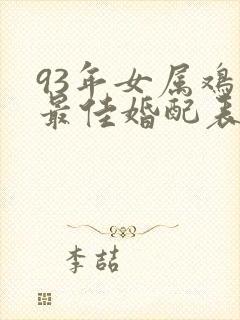 93年女属鸡
最佳婚配表
李喆